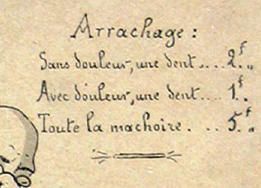 Arrachage :
Sans douleur, une dent.... 2f „
Avec douleur, une dent.... 1f „
Toute la machoire. ... 5f „